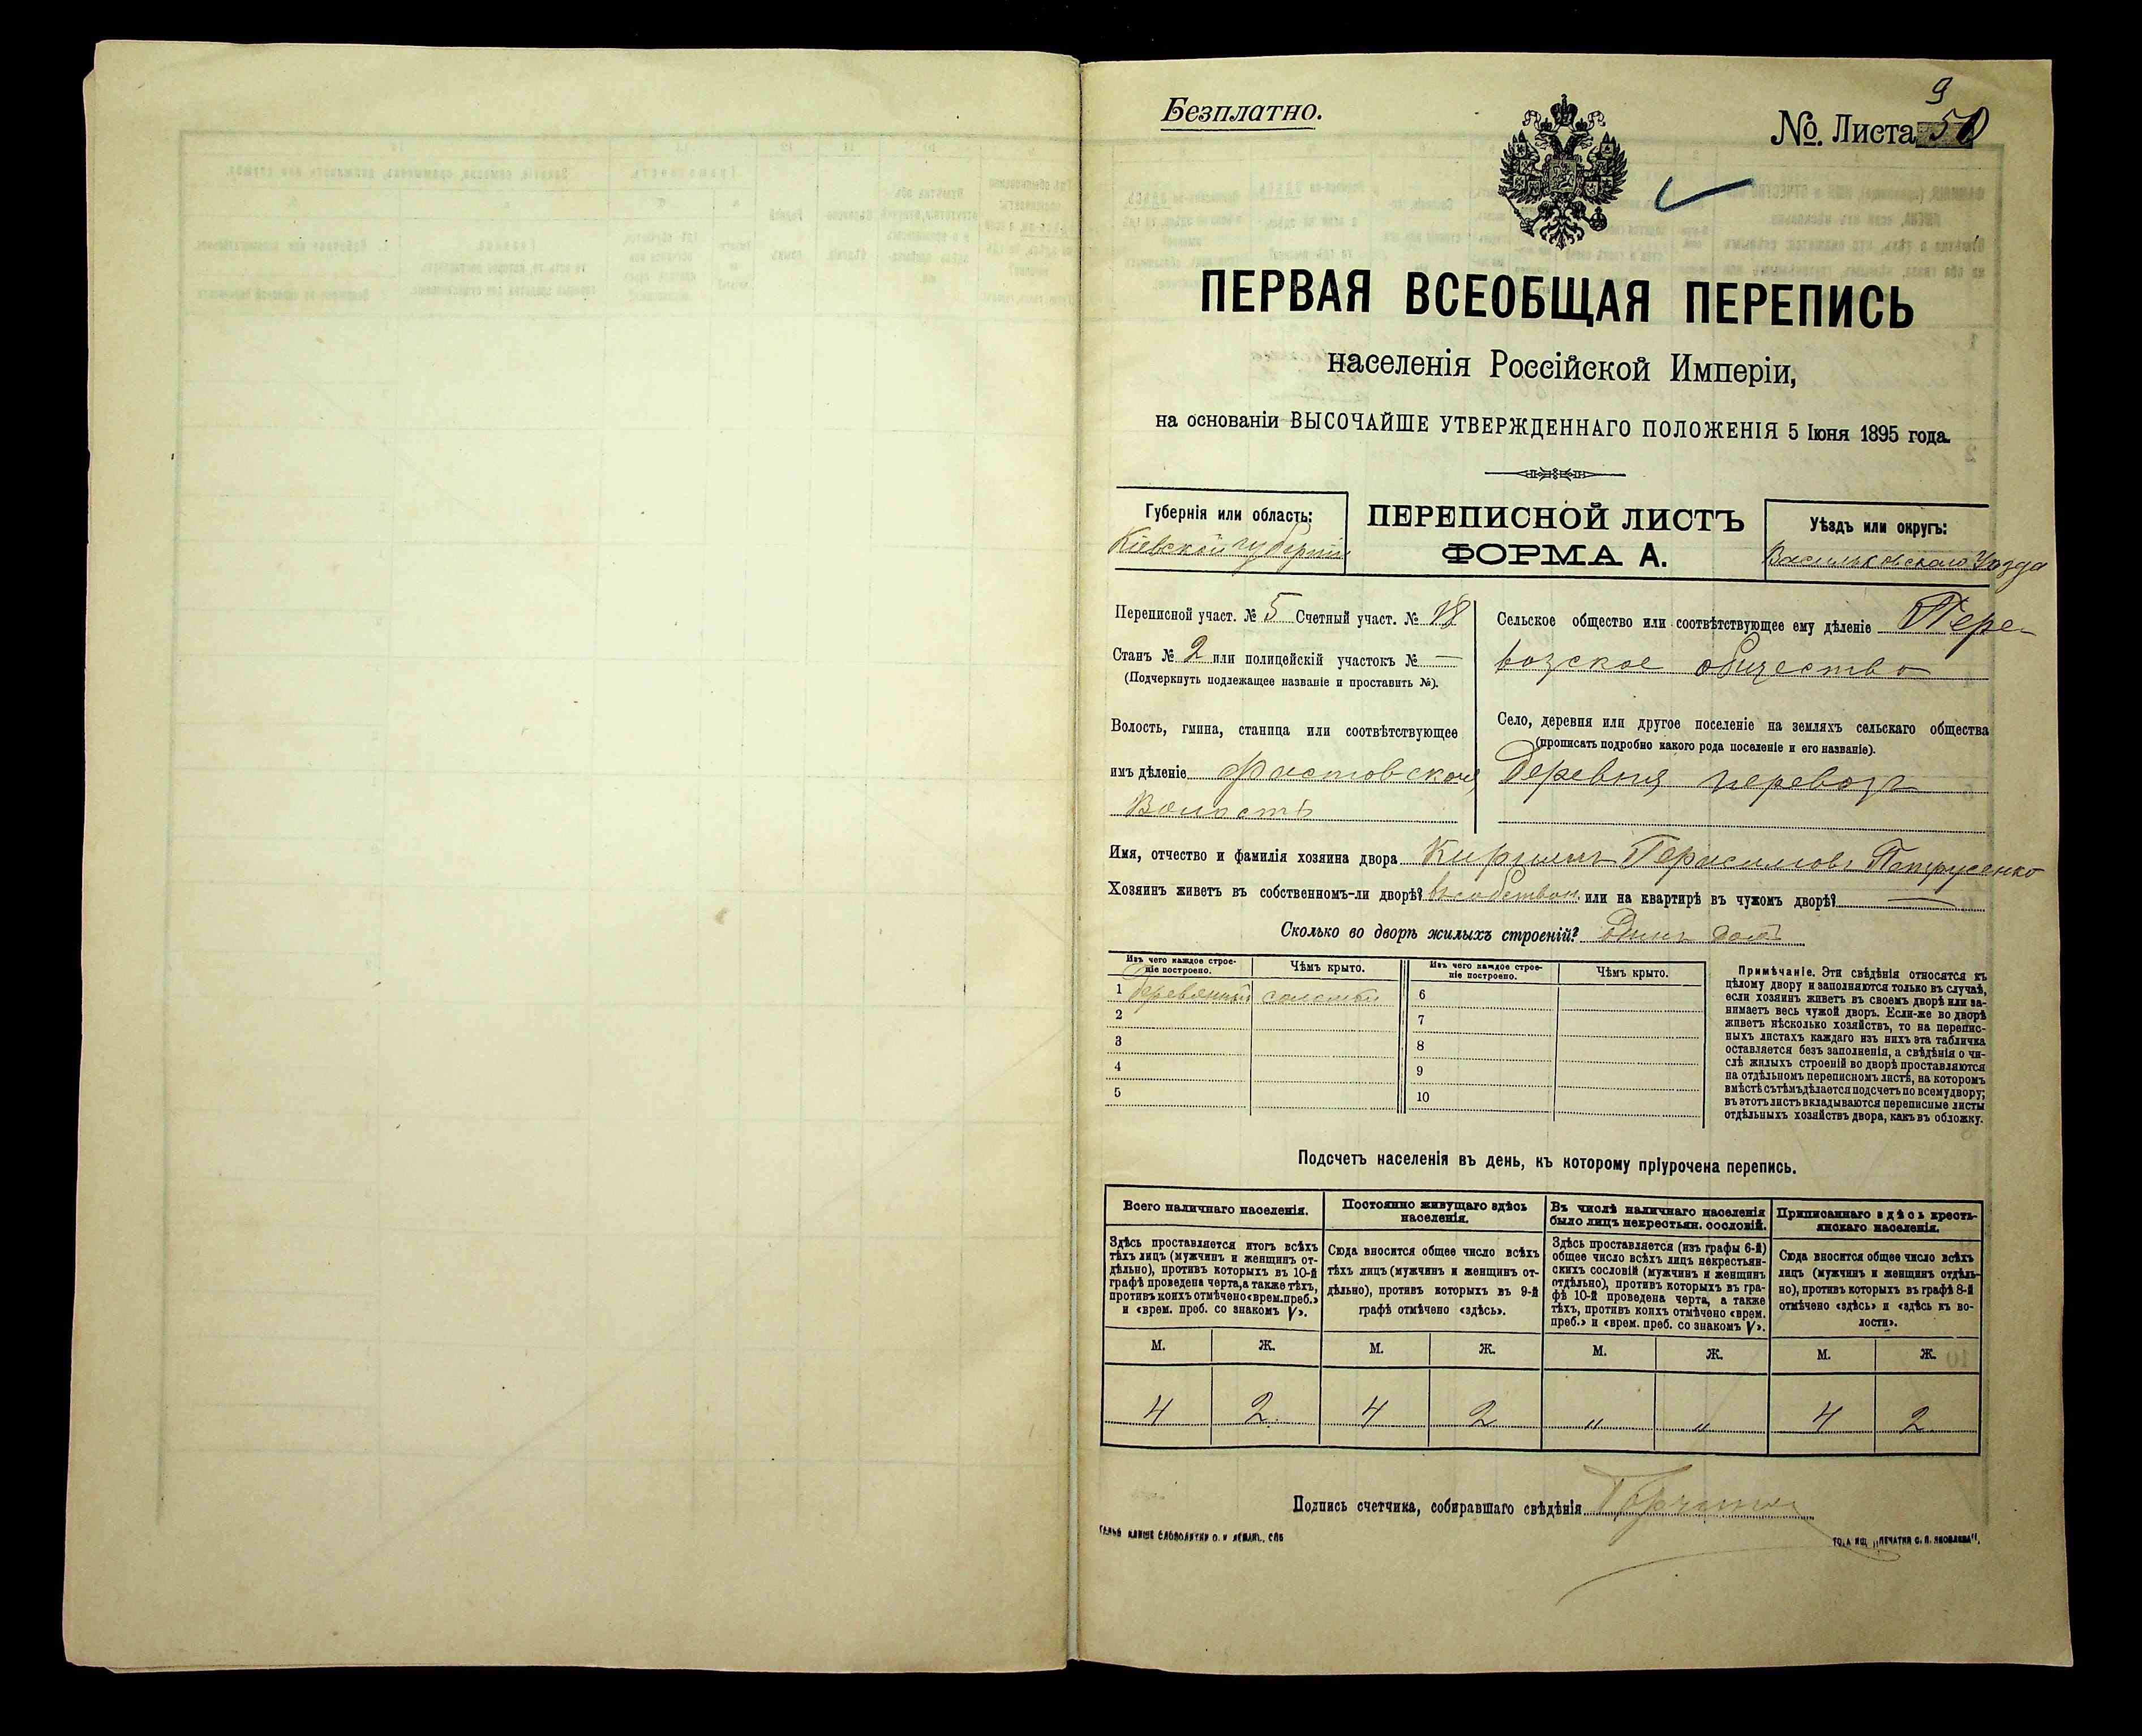 Безплатно.
9
№. Листа 50
ПЕРВАЯ ВСЕОБЩАЯ ПЕРЕПИСЬ
населенія Россійской Имперіи,
на основаніи ВЫСОЧАЙШЕ УТВЕРЖДЕННАГО ПОЛОЖЕНІЯ 5 Іюня 1895 года.
Губернія или область:
Кіевской губерніи
ПЕРЕПИСНОЙ ЛИСТЪ
ФОРМА А.
Уѣздъ или округъ:
Васильковскаго Уѣзда
Переписной участ. № 5 Счетный участ. № 18
Станъ № 2 или полицейскій участокъ № —
(Подчеркнуть подлежащее названіе и проставить №).
Волость, гмина, станица или соотвѣтствующее
имъ дѣленіе Фастовская
Волость
Сельское общество или соотвѣтствующее ему дѣленіе Пере-
возское общество
Село, деревня или другое поселеніе на земляхъ сельскаго общества
(прописать подробно какого рода поселеніе и его названіе).
Деревня перевозъ
Имя, отчество и фамилія хозяина двора Кирилъ Герасимовъ Петрусенко
Хозяинъ живетъ въ собственномъ-ли дворѣ? въ собствен. или на квартирѣ въ чужомъ дворѣ? —
Сколько во дворѣ жилыхъ строеній? Одинъ домъ
Изъ чего каждое строе-
ніе построено.
Чѣмъ крыто.
Изъ чего каждое строе-
ніе построено.
Чѣмъ крыто.
1 деревянный соломой 6
2 7
3 8
4 9
5 10
Примѣчаніе. Эти свѣдѣнія относятся къ
цѣлому двору и заполняются только въ случаѣ,
если хозяинъ живетъ въ своемъ дворѣ или за-
нимаетъ весь чужой дворъ. Если-же во дворѣ
живетъ нѣсколько хозяйствъ, то на перепис-
ныхъ листахъ каждаго изъ нихъ эта табличка
оставляется безъ заполненія, а свѣдѣнія о чи-
слѣ жилыхъ строеній во дворѣ проставляются
на отдѣльномъ переписномъ листѣ, на которомъ
вмѣстѣ съ тѣмъ дѣлается подсчетъ по всему двору;
въ этотъ листъ вкладываются переписные листы
отдѣльныхъ хозяйствъ двора, какъ въ обложку.
Подсчетъ населенія въ день, къ которому пріурочена перепись.
Всего наличнаго населенія.
Здѣсь проставляется итогъ всѣхъ
тѣхъ лицъ (мужчинъ и женщинъ от-
дѣльно), противъ которыхъ въ 10-й
графѣ проведена черта, а также тѣхъ,
противъ коихъ отмѣчено «врем. преб.»
и «врем. преб. со знакомъ V».
Постоянно живущаго здѣсь
населенія.
Сюда вносится общее число всѣхъ
тѣхъ лицъ (мужчинъ и женщинъ от-
дѣльно), противъ которыхъ въ 9-й
графѣ отмѣчено «здѣсь».
Въ числѣ наличнаго населенія
было лицъ некрестьян. сословій.
Здѣсь проставляется (изъ графы 6-й)
общее число всѣхъ лицъ некрестьян-
скихъ сословій (мужчинъ и женщинъ
отдѣльно), противъ которыхъ въ гра-
фѣ 10-й проведена черта, а также
тѣхъ, противъ коихъ отмѣчено «врем.
преб.» и «врем. преб. со знакомъ V».
Приписаннаго здѣсь кресть-
янскаго населенія.
Сюда вносится общее число всѣхъ
лицъ (мужчинъ и женщинъ отдѣль-
но), противъ которыхъ въ графѣ 8-й
отмѣчено «здѣсь» и «здѣсь къ во-
лости».
М. Ж. М. Ж. М. Ж. М. Ж.
4 2 4 2 " " 4 2
Подпись счетчика, собиравшаго свѣдѣнія
КЛИШЕ СЛОВОЛИТНИ О. И. ЛЕМАНЪ, СПБ
„ПЕЧАТНЯ С. П. ЯКОВЛЕВА".